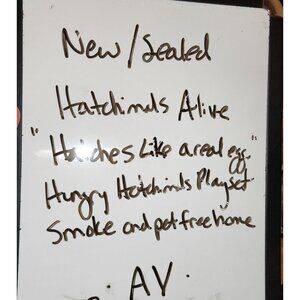 New/Sealed
Hatchimals Alive
"Hatches Like a real egg"
Hungry Hatchimals Playset
Smoke and pet free home
. AV .